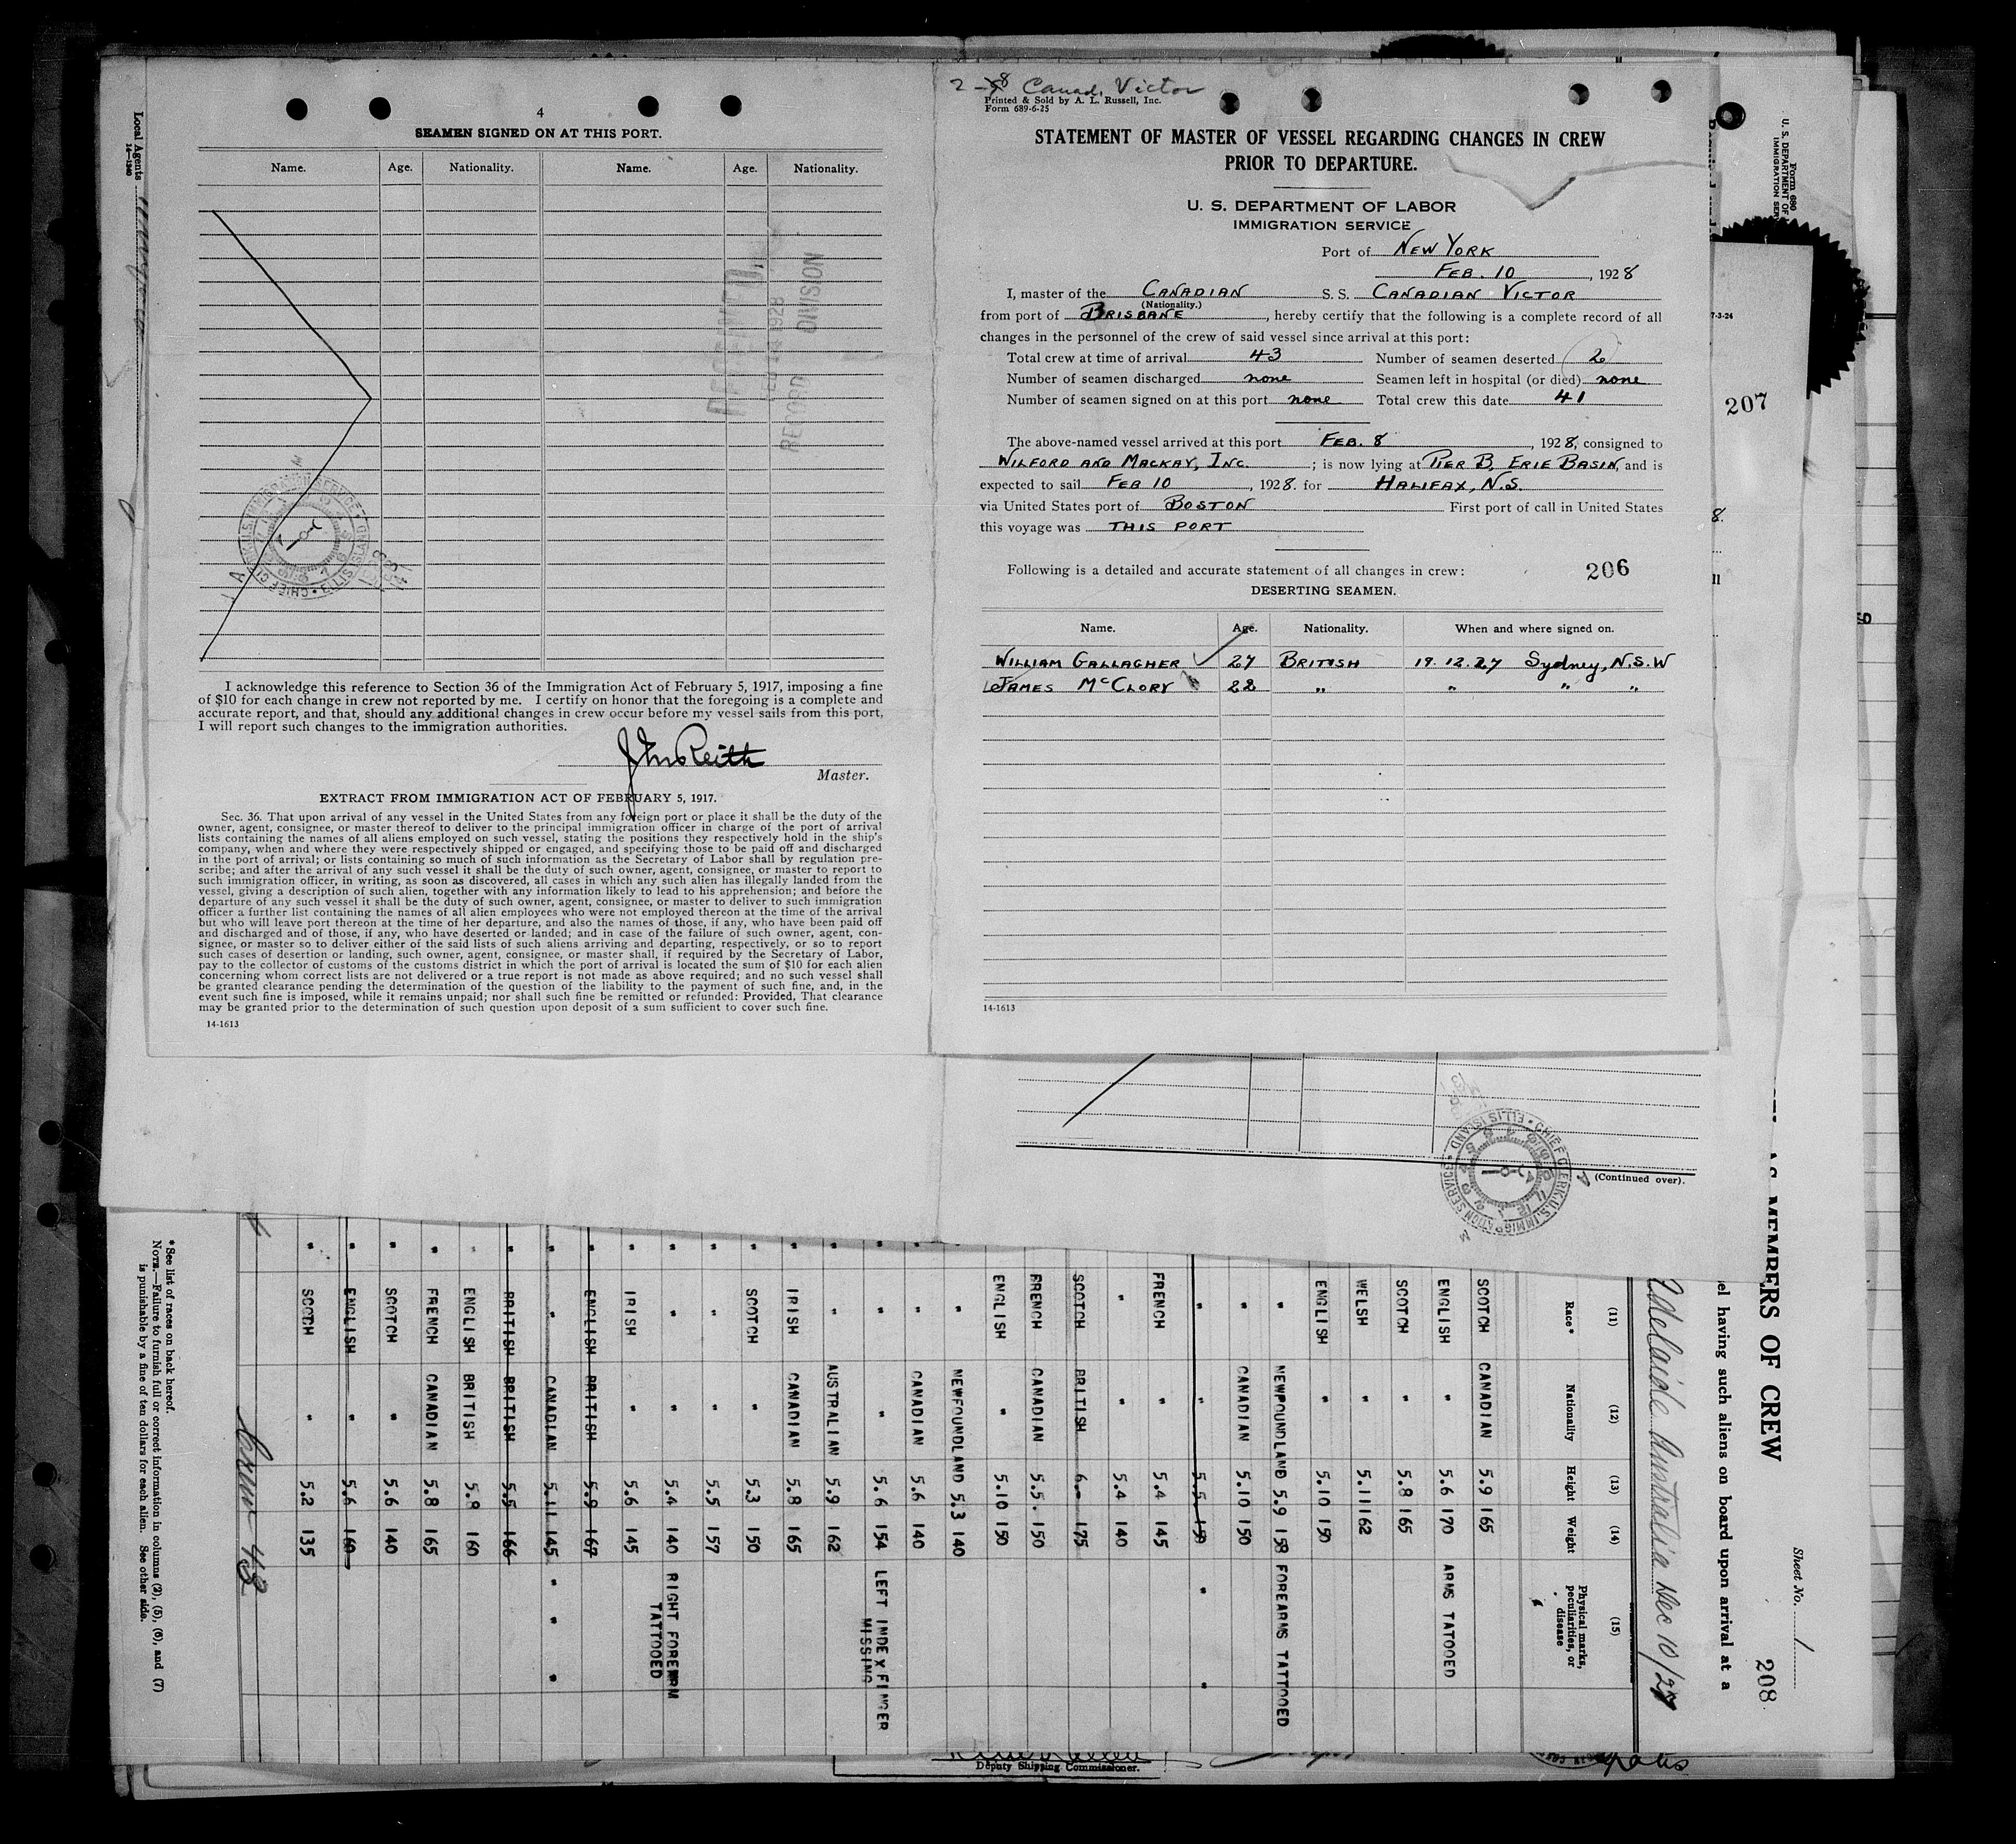 4
SEAMEN SIGNED ON AT THIS PORT.
Name. Age. Nationality. Name. Age. Nationality.
Local Agents
14—1240
RECEIVED
FEB 14 1928
RECORD DIVISION
CHIEF CLERK U.S. IMMIGRATION SERVICE • ELLIS ISLAND
I acknowledge this reference to Section 36 of the Immigration Act of February 5, 1917, imposing a fine
of $10 for each change in crew not reported by me. I certify on honor that the foregoing is a complete and
accurate report, and that, should any additional changes in crew occur before my vessel sails from this port,
I will report such changes to the immigration authorities.
Jno Reith
Master.
EXTRACT FROM IMMIGRATION ACT OF FEBRUARY 5, 1917.
Sec. 36. That upon arrival of any vessel in the United States from any foreign port or place it shall be the duty of the
owner, agent, consignee, or master thereof to deliver to the principal immigration officer in charge of the port of arrival
lists containing the names of all aliens employed on such vessel, stating the positions they respectively hold in the ship's
company, when and where they were respectively shipped or engaged, and specifying those to be paid off and discharged
in the port of arrival; or lists containing so much of such information as the Secretary of Labor shall by regulation pre-
scribe; and after the arrival of any such vessel it shall be the duty of such owner, agent, consignee, or master to report to
such immigration officer, in writing, as soon as discovered, all cases in which any such alien has illegally landed from the
vessel, giving a description of such alien, together with any information likely to lead to his apprehension; and before the
departure of any such vessel it shall be the duty of such owner, agent, consignee, or master to deliver to such immigration
officer a further list containing the names of all alien employees who were not employed thereon at the time of the arrival
but who will leave port thereon at the time of her departure, and also the names of those, if any, who have been paid off
and discharged and of those, if any, who have deserted or landed; and in case of the failure of such owner, agent, con-
signee, or master so to deliver either of the said lists of such aliens arriving and departing, respectively, or so to report
such cases of desertion or landing, such owner, agent, consignee, or master shall, if required by the Secretary of Labor,
pay to the collector of customs of the customs district in which the port of arrival is located the sum of $10 for each alien
concerning whom correct lists are not delivered or a true report is not made as above required; and no such vessel shall
be granted clearance pending the determination of the question of the liability to the payment of such fine, and, in the
event such fine is imposed, while it remains unpaid; nor shall such fine be remitted or refunded: Provided, That clearance
may be granted prior to the determination of such question upon deposit of a sum sufficient to cover such fine.
14-1613
2-8 Canad. Victor
Printed & Sold by A. L. Russell, Inc.
Form 689-6-25
STATEMENT OF MASTER OF VESSEL REGARDING CHANGES IN CREW
PRIOR TO DEPARTURE.
U. S. DEPARTMENT OF LABOR
IMMIGRATION SERVICE
Port of NEW YORK
FEB. 10, 1928
I, master of the CANADIAN S. S. CANADIAN VICTOR
(Nationality.)
from port of BRISBANE, hereby certify that the following is a complete record of all
changes in the personnel of the crew of said vessel since arrival at this port:
Total crew at time of arrival 43 Number of seamen deserted 2
Number of seamen discharged none Seamen left in hospital (or died) none
Number of seamen signed on at this port none Total crew this date 41
The above-named vessel arrived at this port FEB. 8, 1928, consigned to
WILFORD AND MACKAY, INC.; is now lying at PIER B, ERIE BASIN, and is
expected to sail FEB 10, 1928. for HALIFAX, N.S.
via United States port of BOSTON First port of call in United States
this voyage was THIS PORT
Following is a detailed and accurate statement of all changes in crew: 206
DESERTING SEAMEN.
Name. Age. Nationality. When and where signed on.
WILLIAM GALLAGHER 27 BRITISH 19.12.27 Sydney, N.S.W
JAMES McCLORY 22 " " " "
14-1613
(Continued over).
CHIEF CLERK U.S. IMMIGRATION SERVICE • ELLIS ISLAND
Form 680
U. S. DEPARTMENT OF
IMMIGRATION SERV
207
7-3-26
8.
Sheet No. 1
208
MEMBERS OF CREW
el having such aliens on board upon arrival at a
Adelaide Australia Dec 10/27
(11) (12) (13) (14) (15)
Race* Nationality Height Weight Physical marks, peculiarities, or disease
SCOTCH CANADIAN 5.9 165
ENGLISH " 5.6 170 ARMS TATOOED
SCOTCH " 5.8 165
WELSH " 5.11 162
ENGLISH " 5.10 150
" NEWFOUNDLAND 5.9 158 FOREARMS TATTOOED
" CANADIAN 5.10 150
" " 5.5 159
FRENCH " 5.4 145
" " 5.4 140
SCOTCH BRITISH 6.- 175
FRENCH CANADIAN 5.5 150
ENGLISH " 5.10 150
" NEWFOUNDLAND 5.3 140
" CANADIAN 5.6 140
" " 5.6 154 LEFT INDEX FINGER MISSING
" AUSTRALIAN 5.9 162
IRISH CANADIAN 5.8 165
SCOTCH " 5.3 150
" " 5.5 157
" " 5.4 140 RIGHT FOREARM TATTOOED
IRISH " 5.6 145
ENGLISH BRITISH 5.9 167
" CANADIAN 5.11 145
BRITISH BRITISH 5.5 166
ENGLISH BRITISH 5.8 160
FRENCH CANADIAN 5.8 165
SCOTCH " 5.6 140
ENGLISH " 5.6 160
SCOTCH " 5.2 135
Crew 43
* See list of races on back hereof.
NOTE.—Failure to furnish full or correct information in columns (2), (5), (6), and (7)
is punishable by a fine of ten dollars for each alien. See other side.
Deputy Shipping Commissioner.